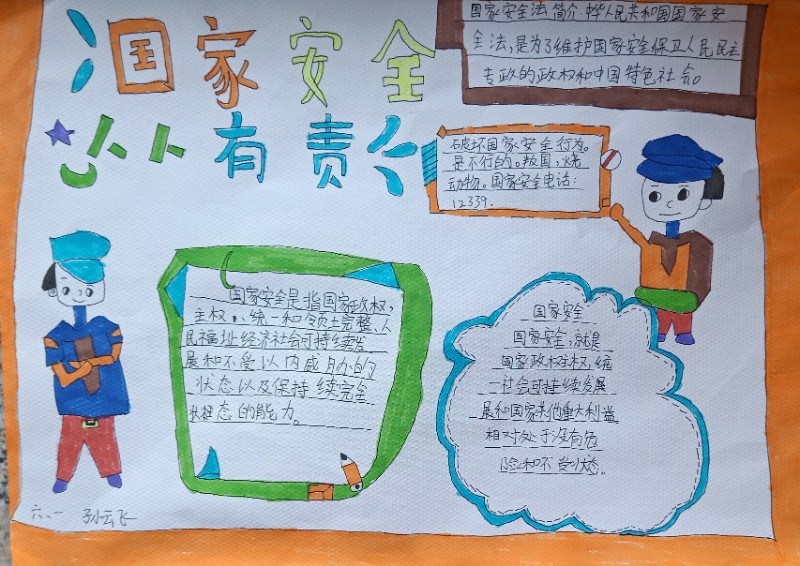 国家安全
人人有责
国家安全法简介.中华人民共和国国家安
全法,是为了维护国家安全保卫人民民主
专政的政权和中国特色社会。
破坏国家安全行为。
是不行的。叛国,烧
动物。国家安全电话:
12339.
国家安全是指国家政权,
主权、统一和领土完整、人
民福址经济社会可持续发
展和不受以内威胁的
状态以及保持续完全
状态的能力。
国家安全
国家安全,就是
国家政权主权,统
一社会可持续发展
展和国家其他重大利益。
相对处于没有危
险和不受状态。
六.一 孙云飞